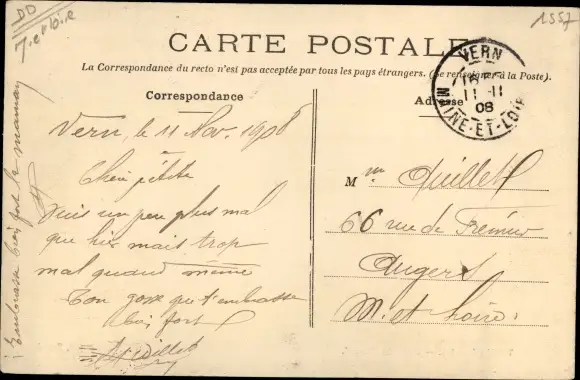 DD
1557
CARTE POSTALE
La Correspondance du recto n'est pas acceptée par tous les pays étrangers. (Se renseigner à la Poste).
Correspondance
Adresse
VERN
11 - 11
08
MAINE-ET-LOIRE
Vern, le 11 Nov. 1908
Chère petite
Suis un peu plus mal
que hier mais trop
mal quand même
Ton gosse qui t'embrasse
bien fort
Embrasse bien fort la maman
M Quillet
66 rue de Frémur
Angers
M. et Loire.